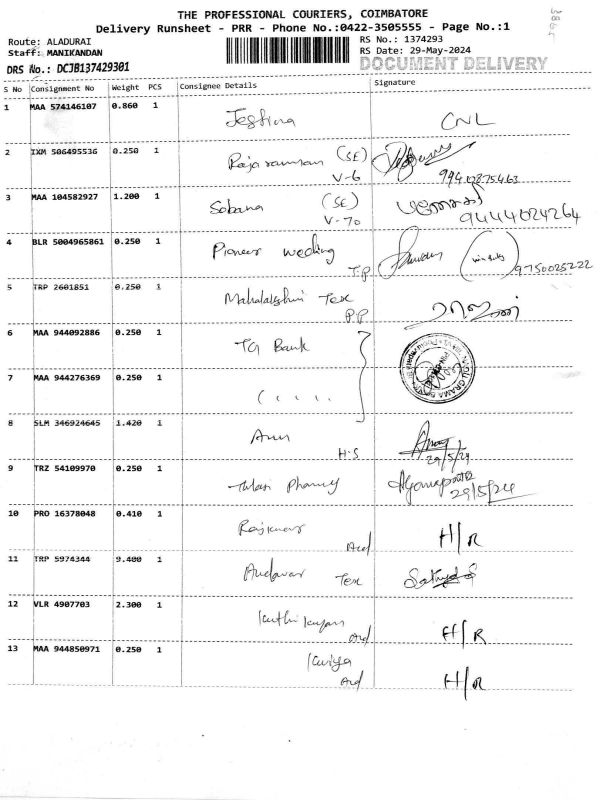 THE PROFESSIONAL COURIERS, COIMBATORE
Delivery Runsheet - PRR - Phone No.:0422-3505555 - Page No.:1
Route: ALADURAI
RS No.: 1374293
Staff: MANIKANDAN
RS Date: 29-May-2024
DRS No.: DCJB137429301
DOCUMENT DELIVERY
S No Consignment No Weight PCS Consignee Details Signature
1 MAA 574146107 0.860 1 Jestina CNL
2 IXM 506495536 0.250 1 Rajaraman (SE)
V-6
3 MAA 104582927 1.200 1 Sobana (SE)
V-70 9444024264
4 BLR 5004965861 0.250 1 Pioneer wedding
T.P 9750025222
5 TRP 2601851 0.250 1 Mahalakshmi Tex
P.P
6 MAA 944092886 0.250 1 TG Bank
7 MAA 944276369 0.250 1
8 SLM 346924645 1.420 1 Arun
H.S 29/5/24
9 TRZ 54109970 0.250 1 Tulasi Pharmy
29/5/24
10 PRO 16378048 0.410 1 Rajkumar
Ard H/R
11 TRP 5974344 9.400 1 Andavar Tex
12 VLR 4907703 2.300 1
Ard H/R
13 MAA 944850971 0.250 1 Kaviya
Ard H/R